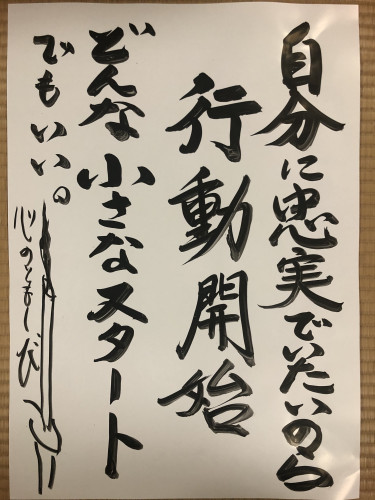 自分に忠実でいたいのら
行動開始
どんな小さなスタート
でもいい。
心のともしび